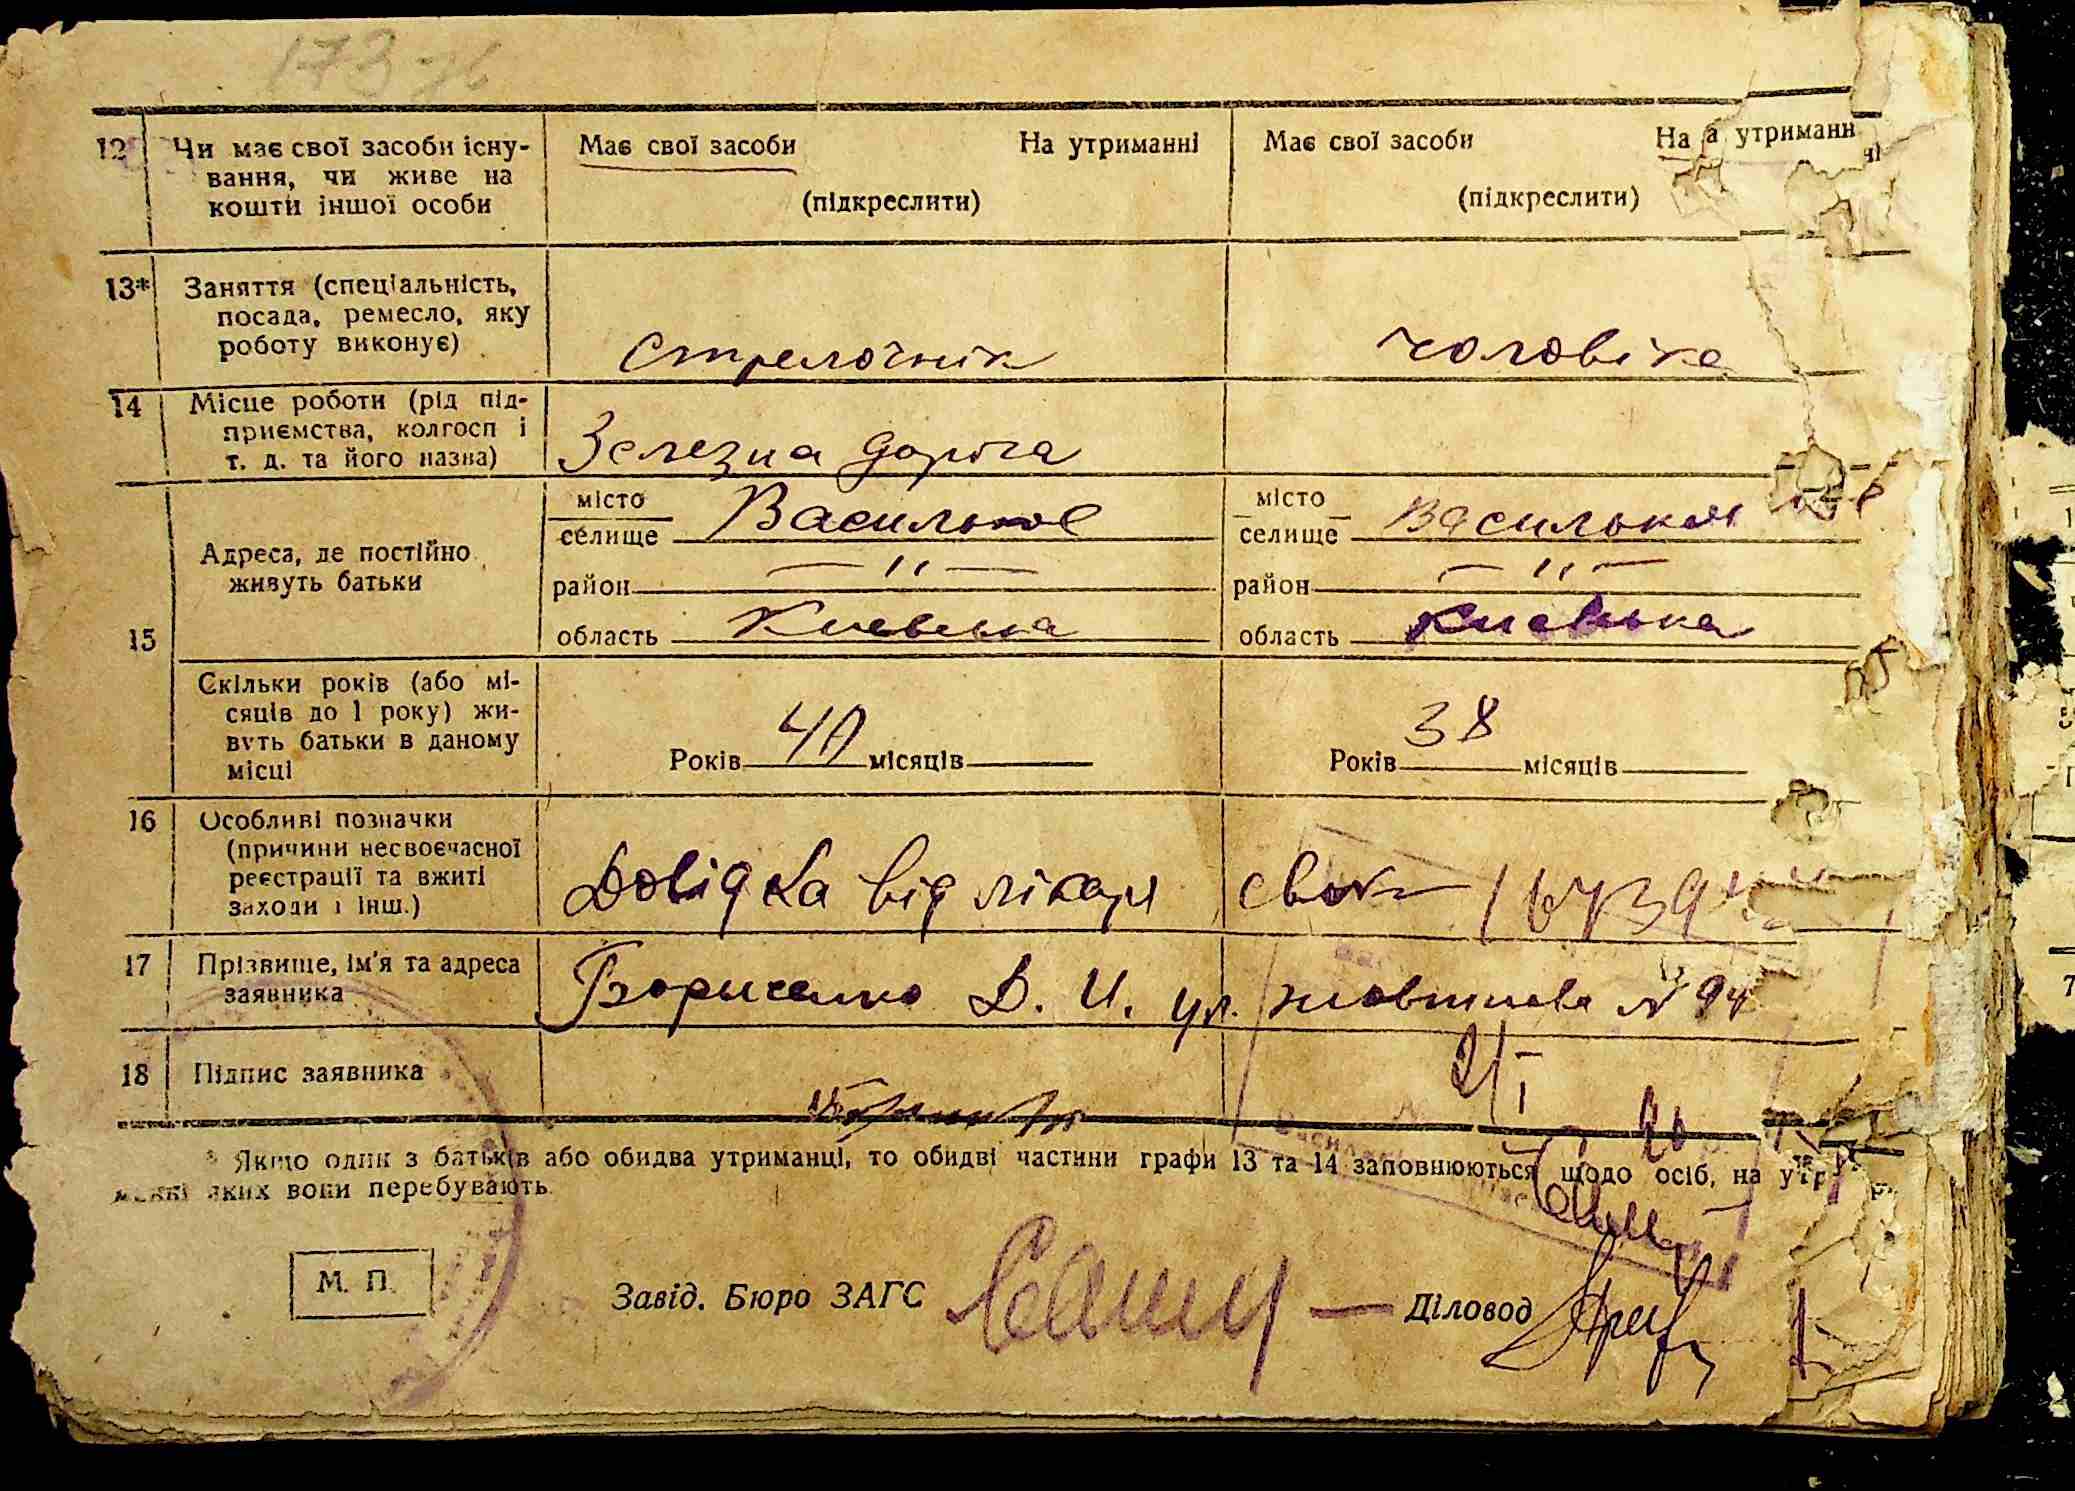 173
12 Чи має свої засоби існу- Має свої засоби На утриманні Має свої засоби На утриманні
вання, чи живе на
кошти іншої особи (підкреслити) (підкреслити)
13* Заняття (спеціальність,
посада, ремесло, яку
роботу виконує) Стрелочнік чоловіка
14 Місце роботи (рід під-
приємства, колгосп і
т. д. та його назва) Зелезна дорога
місто місто
селище Васильков селище Васильков
Адреса, де постійно
живуть батьки район — ״ — район — ״ —
15 область Киевська область Киевська
Скільки років (або мі-
сяців до 1 року) жи-
вуть батьки в даному
місці Років 40 місяців Років 38 місяців
16 Особливі позначки
(причини несвоєчасної
реєстрації та вжиті
заходи і інш.) Довідка від лікаря
17 Прізвище, ім'я та адреса
заявника Борисенко Д. И. ул. жовтнева N 94
18 Підпис заявника
* Якщо один з батьків або обидва утриманці, то обидві частини графи 13 та 14 заповнюються щодо осіб, на утри
манні яких вони перебувають.
М. П. Завід. Бюро ЗАГС Діловод